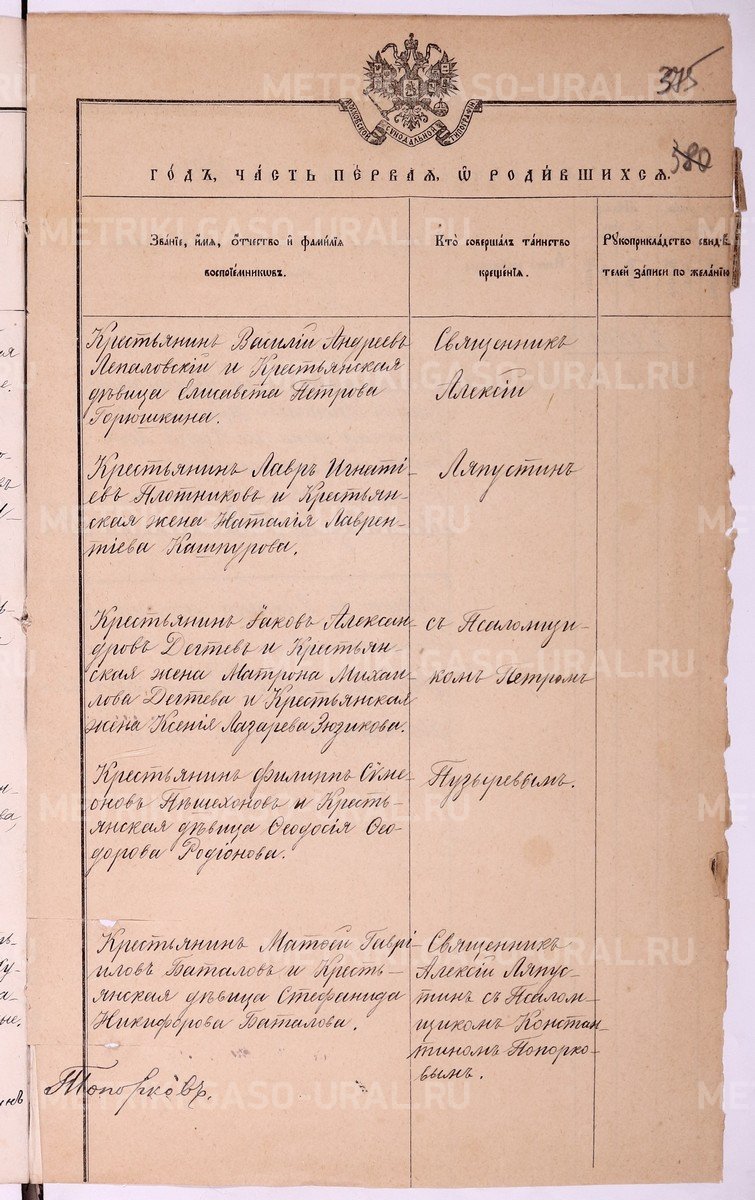 375
380
МОСКОВСКОЙ СѴНОДАЛЬНОЙ ТИПОГРАФІИ
ГО́ДЪ, ЧА́СТЬ ПЕ́РВАЯ, Ѡ҆ РОДИ́ВШИХСЯ.
Зва́нїе, и҆́мя, ѻ҆́тчество и҆ фами́лїя
воспрїе́мниковъ.
Кто̀ соверша́лъ та́инство
креще́нїя.
Рꙋкоприкла́дство свидѣ́-
телей за́писи по жела́нїю
Крестьянинъ Василій Андреевъ
Лепаловскій и Крестьянская
дѣвица Елисавета Петрова
Горюшкина.
Священникъ
Алексій
Крестьянинъ Лавръ Игнаті-
евъ Плотниковъ и Крестьян-
ская жена Наталія Лаврен-
тіева Кашпурова.
Ляпустинъ
Крестьянинъ Іаковъ Алексан-
дровъ Дегтевъ и Крестьян-
ская жена Матрона Михаи-
лова Дегтева и Крестьянская
жена Ксенія Лазарева Зюзикова.
съ Псаломщи-
комъ Петромъ
Крестьянинъ Филиппъ Сѵме-
оновъ Пѣшехоновъ и Кресть-
янская дѣвица Ѳеодосія Ѳео-
дорова Родіонова.
Пузыревымъ.
Крестьянинъ Матѳей Гаврі-
иловъ Баталовъ и Кресть-
янская дѣвица Стефанида
Никифорова Баталова.
Священникъ
Алексій Ляпус-
тинъ съ Псалом-
щикомъ Констан-
тиномъ Топорко-
вымъ.
Топорковъ.
METRIKI.GASO-URAL.RU